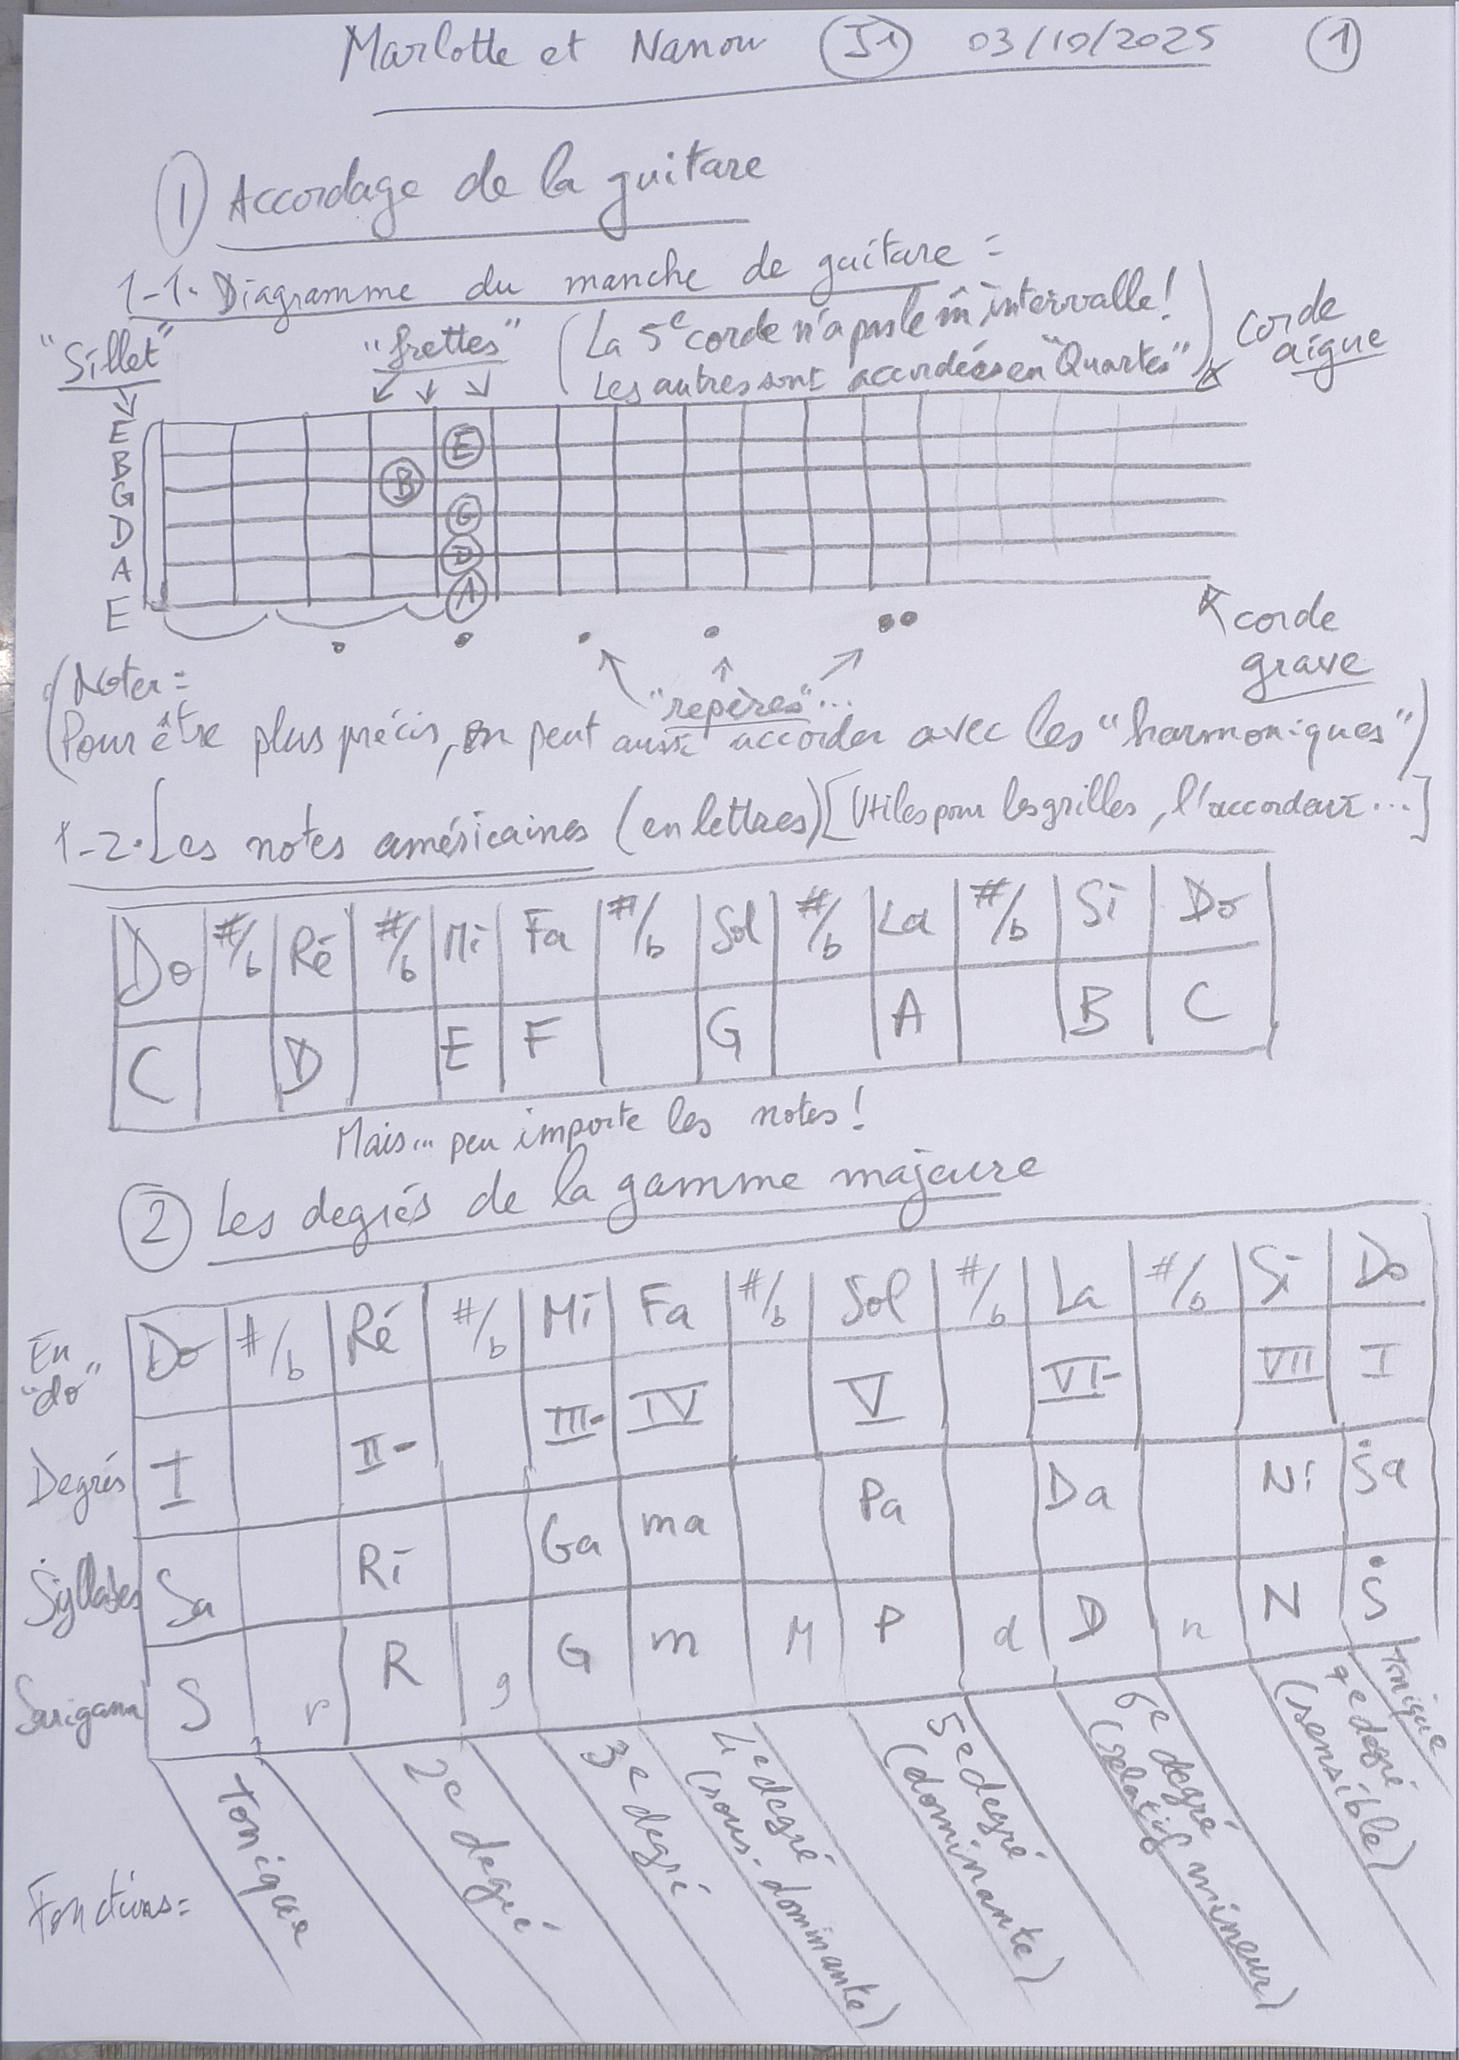 Marlotte et Nanou J1 03/10/2025 1
1 Accordage de la guitare
1-1. Diagramme du manche de guitare :
"Sillet"
"frettes"
(La 5e corde n'a pas le m̂ intervalle!
Les autres sont accordées en "Quartes")
corde
aigue
E
B
G
D
A
E
E
B
G
D
A
corde
grave
"repères"...
(Noter :
Pour être plus précis, on peut aussi accorder avec les "harmoniques")
1-2. Les notes américaines (en lettres) [Utiles pour les grilles, l'accordeur...]
Do #/b Ré #/b Mi Fa #/b Sol #/b La #/b Si Do
C D E F G A B C
Mais... peu importe les notes!
2 Les degrés de la gamme majeure
En "do" Do #/b Ré #/b Mi Fa #/b Sol #/b La #/b Si Do
Degrés I II- III- IV V VI- VII I
Syllabes Sa Ri Ga ma Pa Da Ni Ṡa
Sarigama S r R g G m M P d D n N Ṡ
Fonctions :
Tonique
2e degré
3e degré
4e degré
(sous-dominante)
5e degré
(dominante)
6e degré
(relatif mineur)
7e degré
(sensible)
Tonique